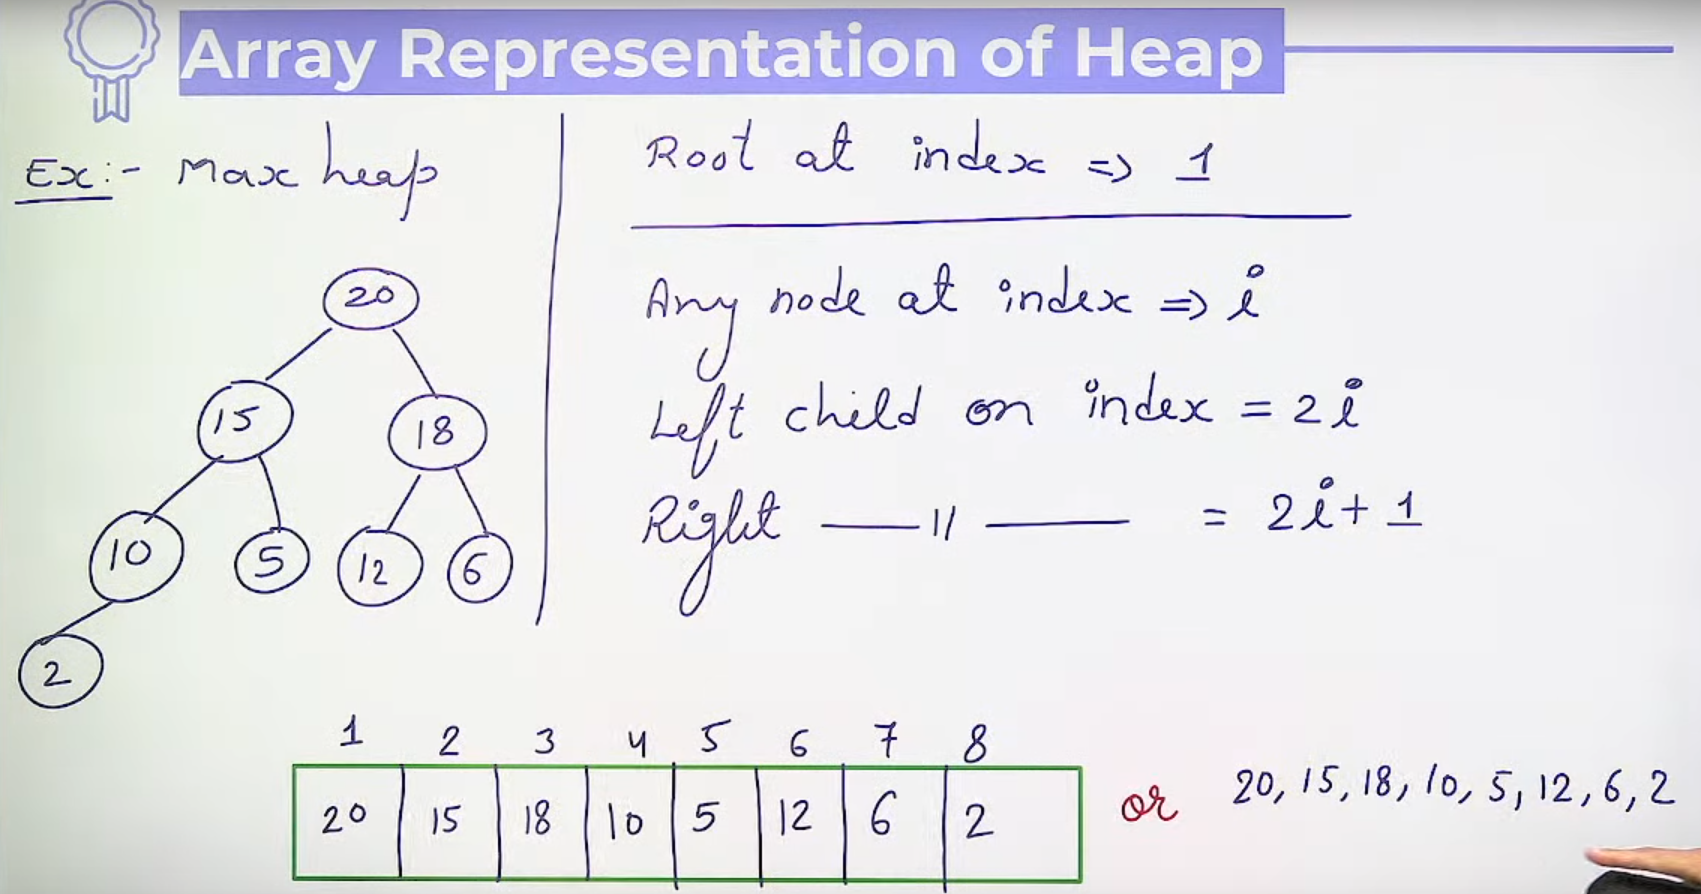 Array Representation of Heap
Ex:- Max heap
20
15 18
10 5 12 6
2
Root at index => 1
Any node at index => i
Left child on index = 2i
Right —— 11 —— = 2i+1
1 2 3 4 5 6 7 8
20 15 18 10 5 12 6 2
or 20, 15, 18, 10, 5, 12, 6, 2